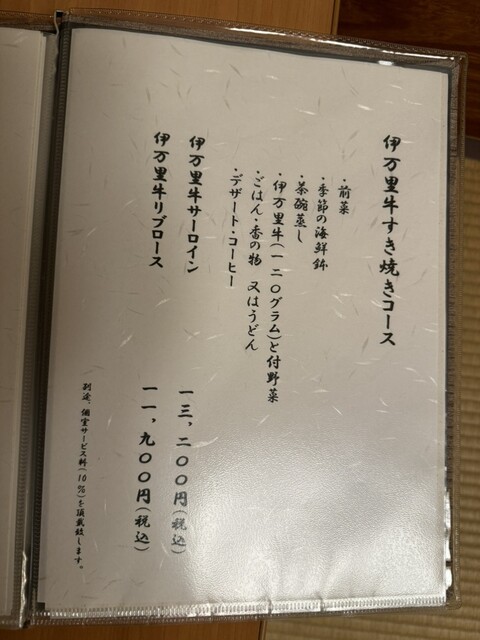 伊万里牛すき焼きコース
・前菜
・季節の海鮮鉢
・茶碗蒸し
・伊万里牛(一二〇グラム)と付野菜
・ごはん・香の物 又はうどん
・デザート・コーヒー
伊万里牛サーロイン 一三,二〇〇円(税込)
伊万里牛リブロース 一一,九〇〇円(税込)
別途、個室サービス料(10%)を頂戴致します。